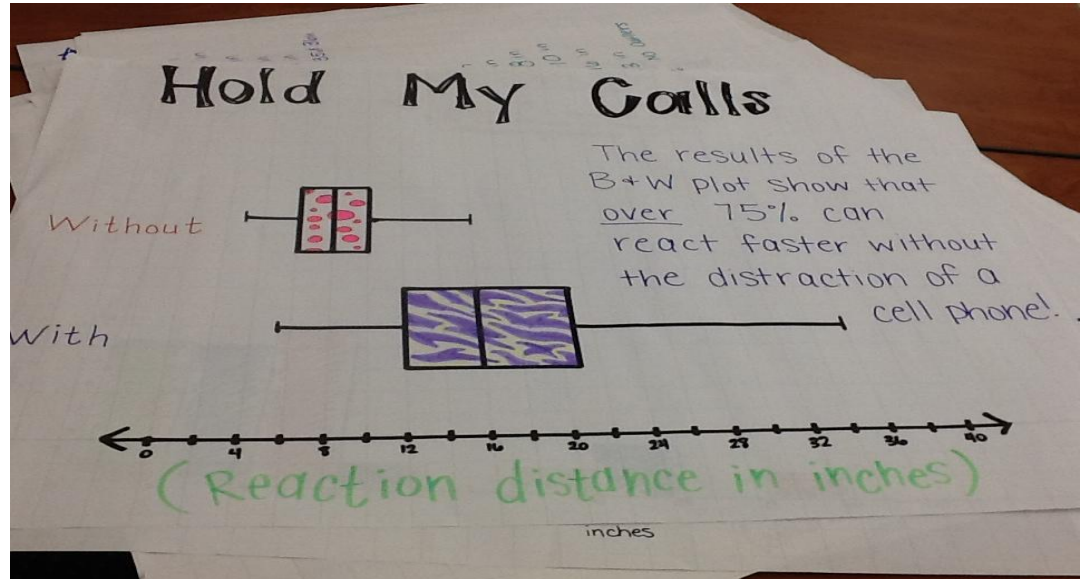 Hold My Calls
The results of the
B+W plot show that
over 75% can
react faster without
the distraction of a
cell phone!
Without
With
0 4 8 12 16 20 24 28 32 36 40
(Reaction distance in inches)
inches